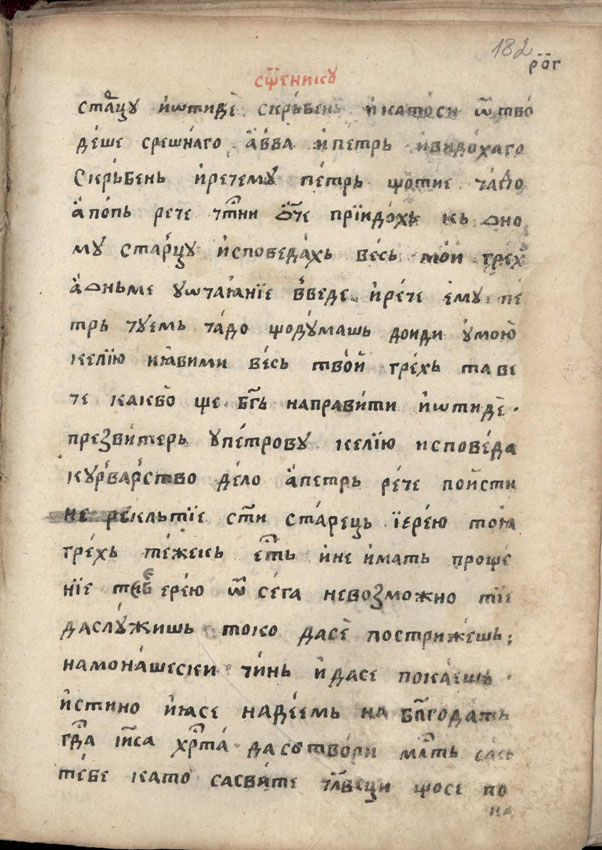 182
ро҃г
сщ҃еникꙋ
старцꙋ и҆ѡтиде скрьбень и҆катоси ѿтво
деше срешнаго а҆вва и҆петрь и҆видохаго
скрьбень и҆речемꙋ петрь щотие чадо
а҆попь рече чт҃ни ѻ҃че прїидохь кь ѻно
мꙋ старцꙋ исповедахь весь мои грехь
а҆ѻньме ꙋѡтчаꙗнїе введе и҆рече емꙋ пе
трь тꙋемь чадо щодꙋмашь доиди ꙋмою
келїю иꙗвими весь твои грехь та ве
че какво ще бг҃ь направити и҆ѡтиде
презвитерь ꙋпетровꙋ келїю исповеда
кꙋрварство дело а҆петрь рече поисти
не рекльтїе ст҃и старець їерею тоꙗ
грехь тежекь ест҃ь ине имать проще
нїе тебе ерею ѿ сега невозможно тїе
даслꙋжишь токо дасе пострижешь;
намонашески чинь и҆дасе покаешь
и҆стино и҆ꙗсе надеемь на бл҃годать
гд҃а їс҃а хрт҃а дасотвори млт҃ь сась
тебе като сасвите чл҃веци щосе по
ка